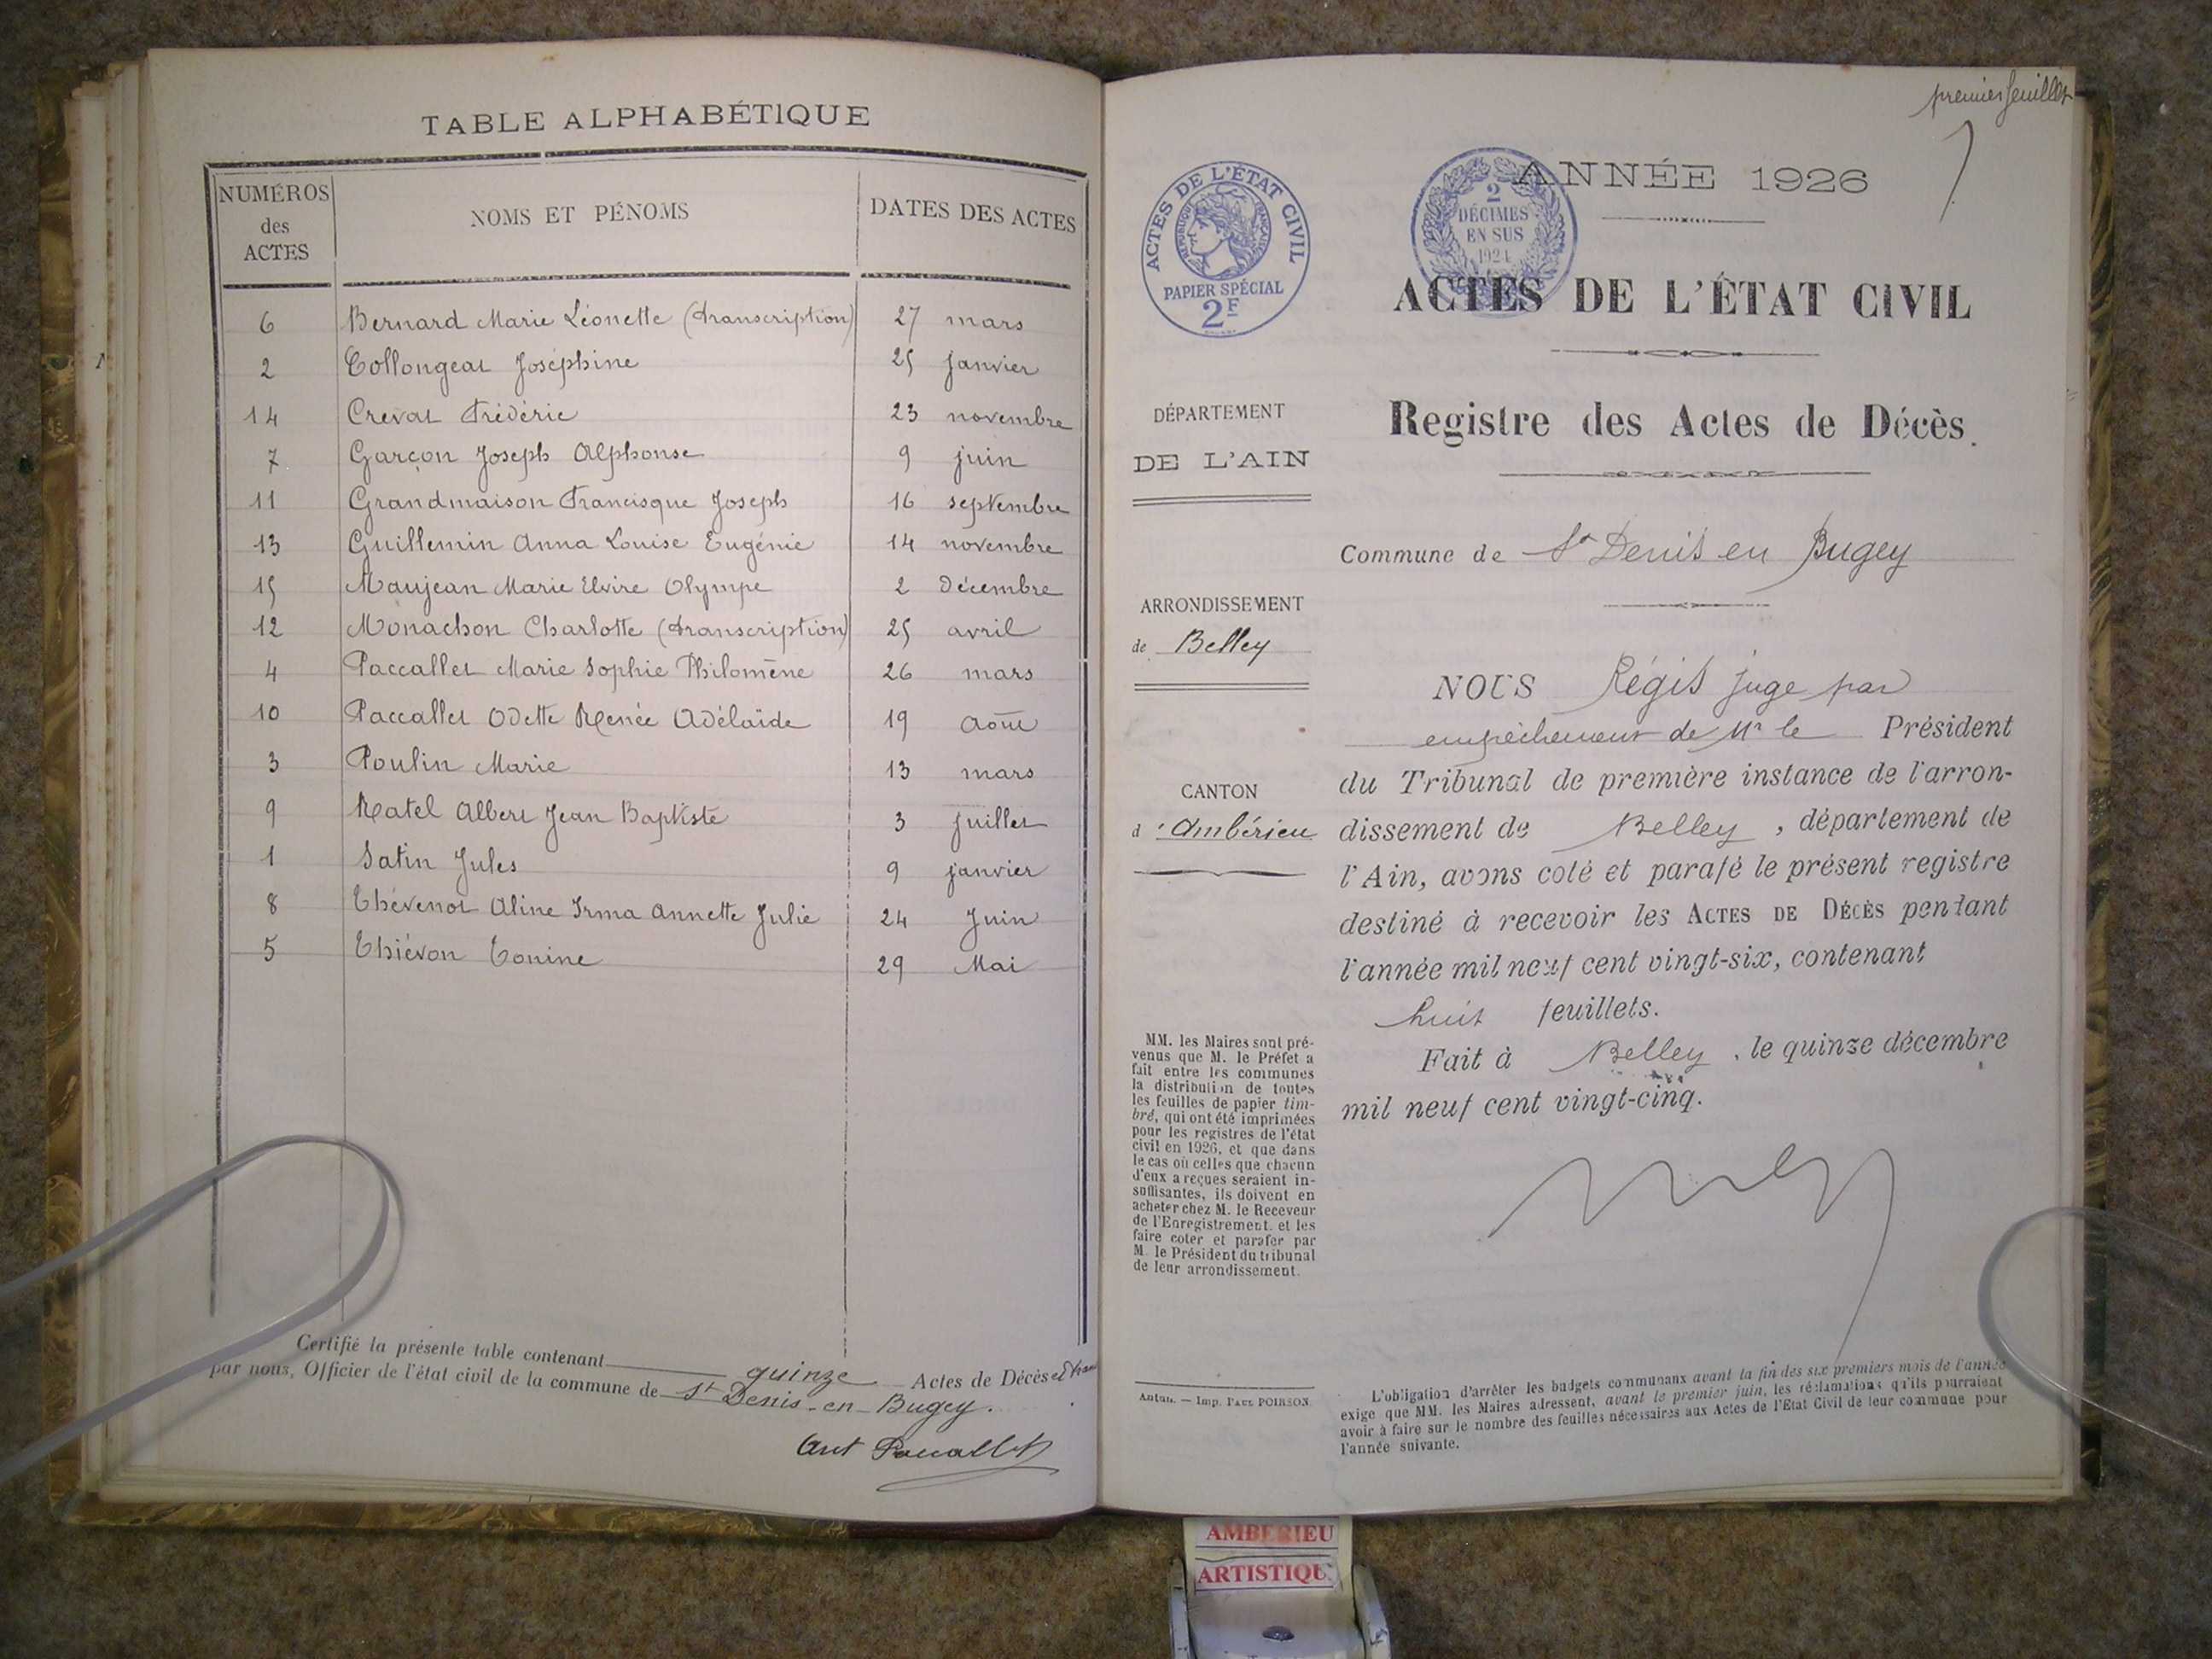 TABLE ALPHABÉTIQUE
NUMÉROS des ACTES
NOMS ET PÉNOMS
DATES DES ACTES
6 Bernard Marie Léonette (transcription) 27 mars
2 Collongeat Joséphine 25 janvier
14 Crevat Frédéric 23 novembre
7 Garçon Joseph Alphonse 9 juin
11 Grandmaison Francisque Joseph 16 septembre
13 Guillemin Anna Louise Eugénie 14 novembre
15 Maujean Marie Elvire Olympe 2 décembre
12 Monachon Charlotte (transcription) 25 avril
4 Paccallet Marie Sophie Philomène 26 mars
10 Paccallet Odette Renée Adélaïde 19 août
3 Poulin Marie 13 mars
9 Ratel Albert Jean Baptiste 3 juillet
1 Satin Jules 9 janvier
8 Thévenot Aline Irma Annette Julie 24 Juin
5 Thiévon Tonine 29 Mai
Certifié la présente table contenant quinze Actes de Décès
par nous, Officier de l'état civil de la commune de St Denis-en-Bugey.
Ant Paccallet
premier feuillet
ACTES DE L'ÉTAT CIVIL
RÉPUBLIQUE FRANÇAISE
PAPIER SPÉCIAL
2F
2
DÉCIMES
EN SUS
1924
ANNÉE 1926
ACTES DE L'ÉTAT CIVIL
Registre des Actes de Décès.
DÉPARTEMENT
DE L'AIN
ARRONDISSEMENT
de Belley
CANTON
d'Ambérieu
Commune de St Denis en Bugey
NOUS Régis juge par
empêchement de Mr le Président
du Tribunal de première instance de l'arron-
dissement de Belley, département de
l'Ain, avons coté et parafé le présent registre
destiné à recevoir les ACTES DE DÉCÈS pendant
l'année mil neuf cent vingt-six, contenant
huit feuillets.
Fait à Belley, le quinze décembre
mil neuf cent vingt-cinq.
MM. les Maires sont pré-
venus que M. le Préfet a
fait entre les communes
la distribution de toutes
les feuilles de papier tim-
bré, qui ont été imprimées
pour les registres de l'état
civil en 1926, et que dans
le cas où celles que chacun
d'eux a reçues seraient in-
suffisantes, ils doivent en
acheter chez M. le Receveur
de l'Enregistrement, et les
faire coter et parafer par
M. le Président du tribunal
de leur arrondissement.
Autun. — Imp. PAUL POIRSON
L'obligation d'arrêter les budgets communaux avant la fin des six premiers mois de l'année
exige que MM. les Maires adressent, avant le premier juin, les réclamations qu'ils pourraient
avoir à faire sur le nombre des feuilles nécessaires aux Actes de l'Etat Civil de leur commune pour
l'année suivante.
AMBERIEU
ARTISTIQU